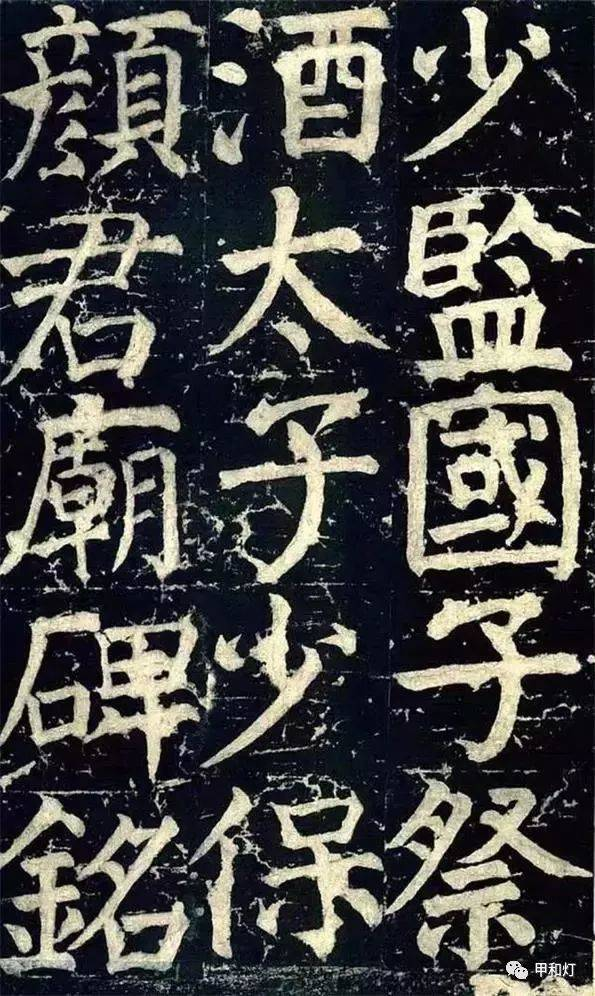 少監國子祭
酒太子少保
顏君廟碑銘
甲和灯